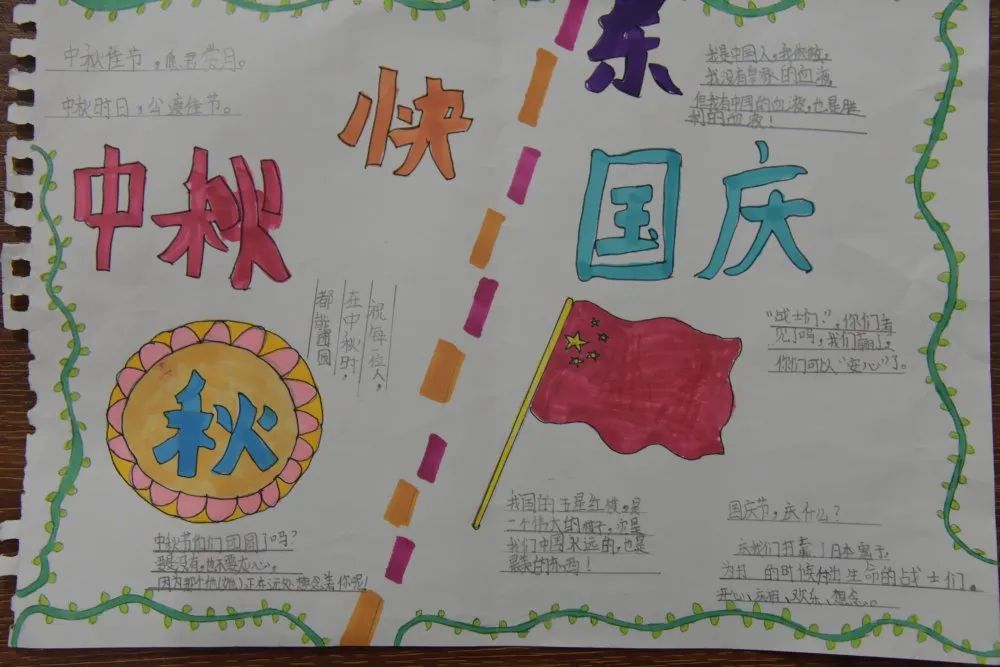 中秋佳节，愿君赏月。
中秋时日，公渡佳节。
快
中秋
祝每一位人，
在中秋时，
都能团圆
秋
中秋节你们团圆了吗？
要是没有，也不要太心。
因为那个他(她)，正在远处想念着你呢！
乐
我是中国人，我骄傲。
我没有的血液
但我有中国的血液，也是胜
利的血液！
国庆
“战士们：”，你们看
见了吗，我们赢了，
你们可以“安心”了。
我国的五星红旗，是
一个伟大的旗子，它是
我们中国永远的，也是
最美的东西！
国庆节，庆什么？
庆我们打赢了日本寇子，
为的时候付出生命的战士们。
开心、欢乐、想念。